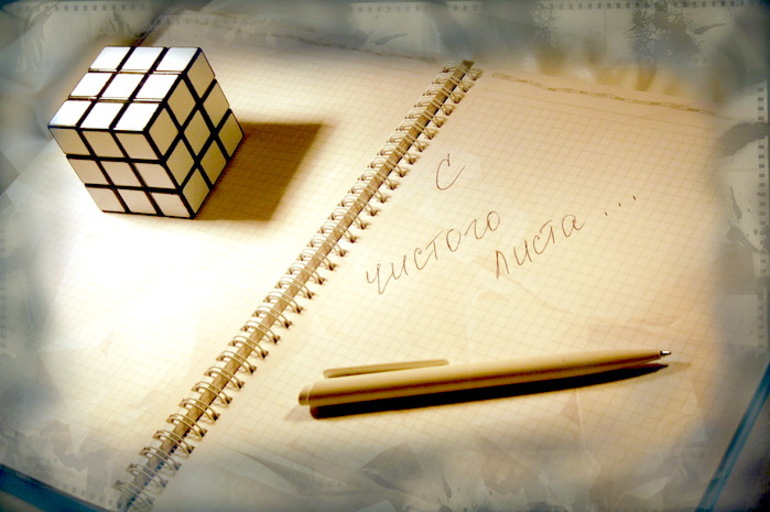 С
чистого
листа ...